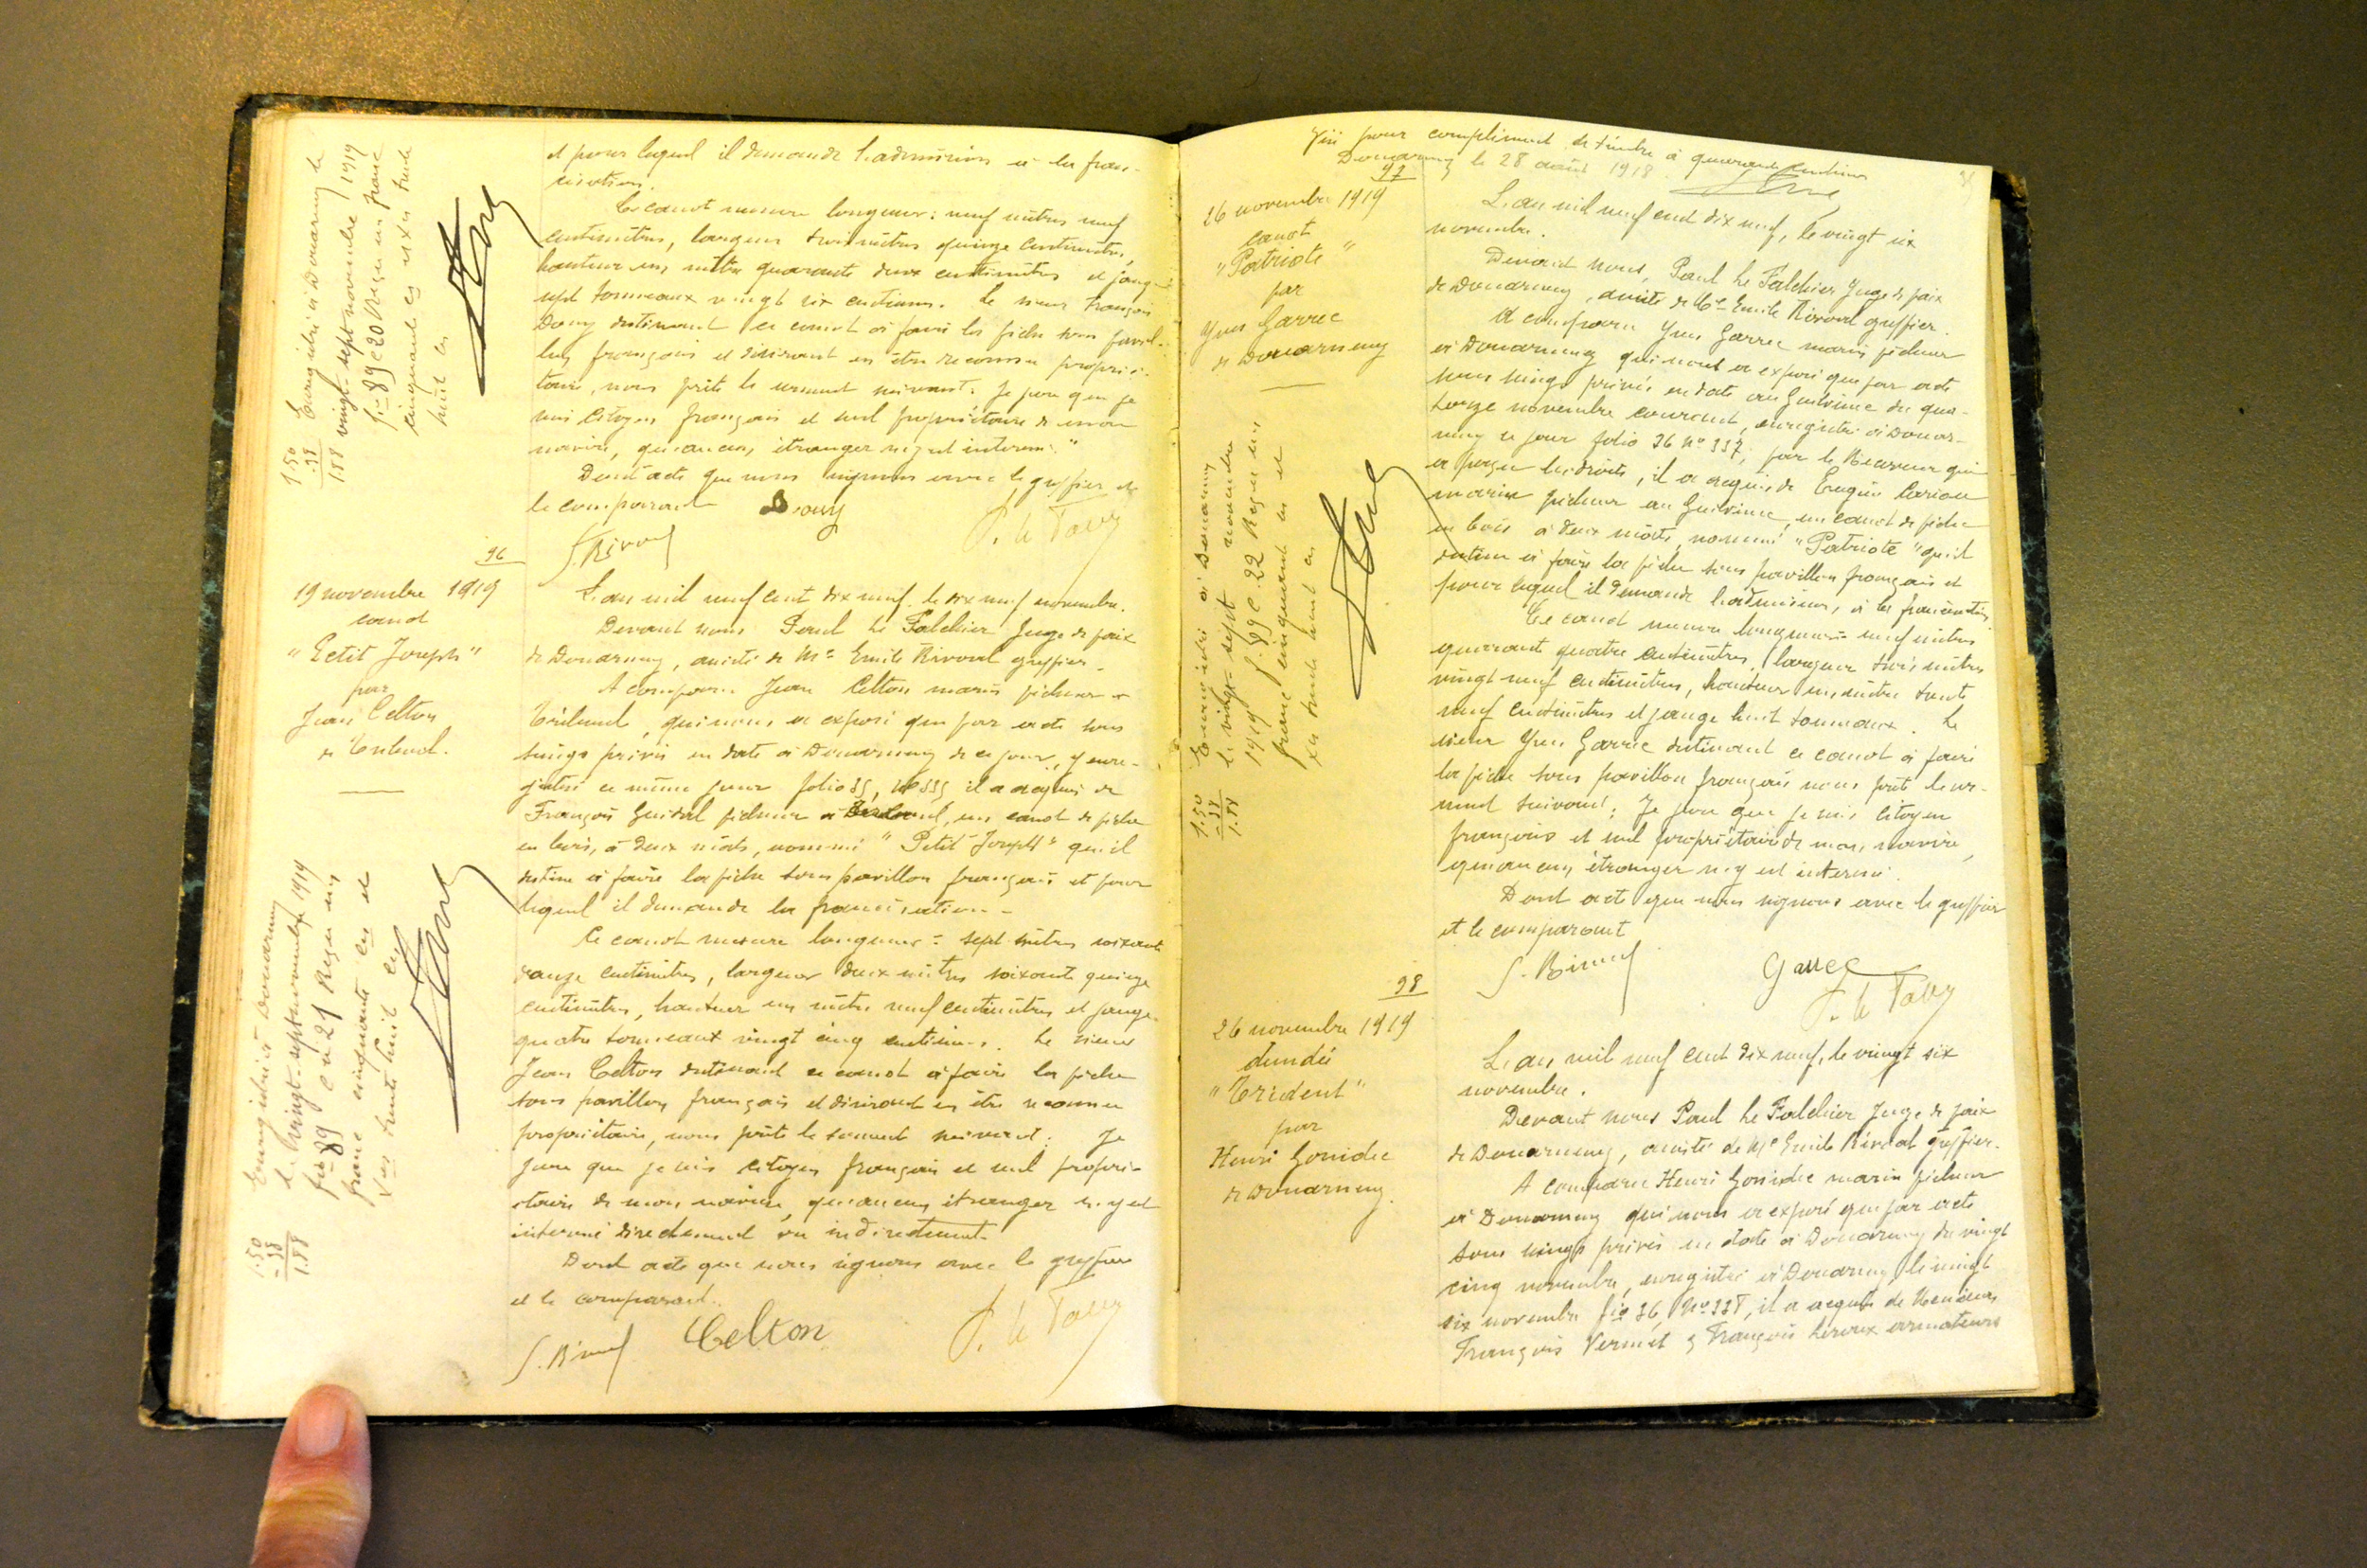 et pour lequel il demande l'admission à la fran-
cisation.
Ce canot mesure longueur: neuf mètres neuf
centimètres, largeur trois mètres quinze centimètres,
hauteur un mètre quarante deux centimètres et jauge
sept tonneaux vingt six centièmes. Le sieur François
Douy destinant ce canot à faire la pêche sous pavil-
lon français et désirant en être reconnu proprié-
taire, nous prête le serment suivant: Je jure que je
suis citoyen français et seul propriétaire de mon
navire, qu'aucun étranger n'y est intéressé."
Dont acte que nous signons avec le greffier et
le comparant Douy
Enregistré à Douarnenez le
vingt-sept novembre 1919
f° 89 c 20 Reçu un franc
cinquante cs et xes trente
huit cs
1.50
.38
1.88
96
19 novembre 1919
canot
"Petit Joseph"
par
Jean Celton
de Tréboul.
L'an mil neuf cent dix neuf, le dix neuf novembre.
Devant nous Paul Le Falchier Juge de paix
de Douarnenez, assisté de Me Emile Rivoal greffier.
A comparu Jean Celton marin pêcheur à
Tréboul, qui nous a exposé que par acte sous
seings privés en date à Douarnenez de ce jour, y enre-
gistré ce même jour folio 35, N° 335 il a acquis de
François Guidal pêcheur à Tréboul, un canot de pêche
en bois, à deux mâts, nommé "Petit Joseph" qu'il
destine à faire la pêche sous pavillon français et pour
lequel il demande la francisation.
Ce canot mesure longueur: sept mètres soixante
douze centimètres, largeur deux mètres soixante quinze
centimètres, hauteur un mètre neuf centimètres et jauge
quatre tonneaux vingt cinq centièmes. Le sieur
Jean Celton destinant ce canot à faire la pêche
sous pavillon français et désirant en être reconnu
propriétaire, nous prête le serment suivant: Je
jure que je suis citoyen français et seul proprié-
taire de mon navire, qu'aucun étranger n'y est
intéressé directement ou indirectement.
Dont acte que nous signons avec le greffier
et le comparant.
Celton
Enregistré à Douarnenez
le vingt-sept novembre 1919
f° 89 c 21 Reçu un
franc cinquante cs et
xes trente huit cs
1.50
.38
1.88
Vu pour complément de timbre à quarante centimes
Douarnenez le 28 août 1918
97
26 novembre 1919
canot
"Patriote"
par
Yves Garrec
de Douarnenez
L'an mil neuf cent dix neuf, le vingt six
novembre.
Devant nous, Paul Le Falchier Juge de paix
de Douarnenez, assisté de Me Emile Rivoal greffier.
A comparu Yves Garrec marin pêcheur
à Douarnenez qui nous a exposé que par acte
sous seings privés en date au Guilvinec du qua-
torze novembre courant, enregistré à Douar-
nenez ce jour folio 36 N° 337, par le Receveur qui
a perçu les droits, il a acquis de Eugène Cariou
marin pêcheur au Guilvinec, un canot de pêche
en bois à deux mâts, nommé "Patriote" qu'il
destine à faire la pêche sous pavillon français et
pour lequel il demande l'admission à la francisation.
Ce canot mesure longueur: neuf mètres
quarante quatre centimètres, largeur trois mètres
vingt neuf centimètres, hauteur un mètre trente
neuf centimètres et jauge huit tonneaux. Le
sieur Yves Garrec destinant ce canot à faire
la pêche sous pavillon français nous prête le ser-
ment suivant: Je jure que je suis citoyen
français et seul propriétaire de mon navire,
qu'aucun étranger n'y est intéressé.
Dont acte que nous signons avec le greffier
et le comparant
Garrec
Enregistré à Douarnenez
le vingt-sept novembre
1919 f. 89 c. 22 Reçu un
franc cinquante cs et
xes trente huit cs
1.50
.38
1.88
98
26 novembre 1919
dundée
"Trident"
par
Henri Gonidec
de Douarnenez.
L'an mil neuf cent dix neuf, le vingt six
novembre.
Devant nous Paul Le Falchier Juge de paix
de Douarnenez, assisté de Me Emile Rivoal greffier.
A comparu Henri Gonidec marin pêcheur
à Douarnenez qui nous a exposé que par acte
sous seings privés en date à Douarnenez du vingt
cinq novembre, enregistré à Douarnenez le vingt
six novembre f° 36, N° 338, il a acquis de Messieurs
François Vermet & François Leroux armateurs